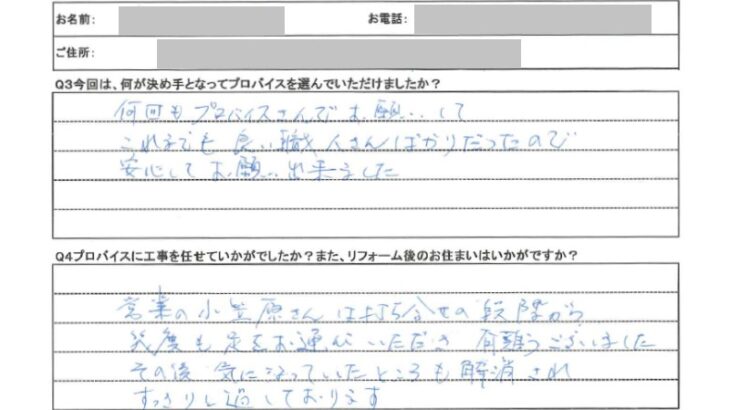 お名前:
お電話:
ご住所:
Q3今回は、何が決め手となってプロバイスを選んでいただけましたか?
何回もプロバイスさんでお願いして
これまでも良い職人さんばかりだったので
安心してお願い出来ました
Q4プロバイスに工事を任せていかがでしたか?また、リフォーム後のお住まいはいかがですか?
営業の小笠原さんは打ち合せの段階から
幾度も足をお運びいただき有難うございました
その後気になっていたところも解消され
すっきりし過しております